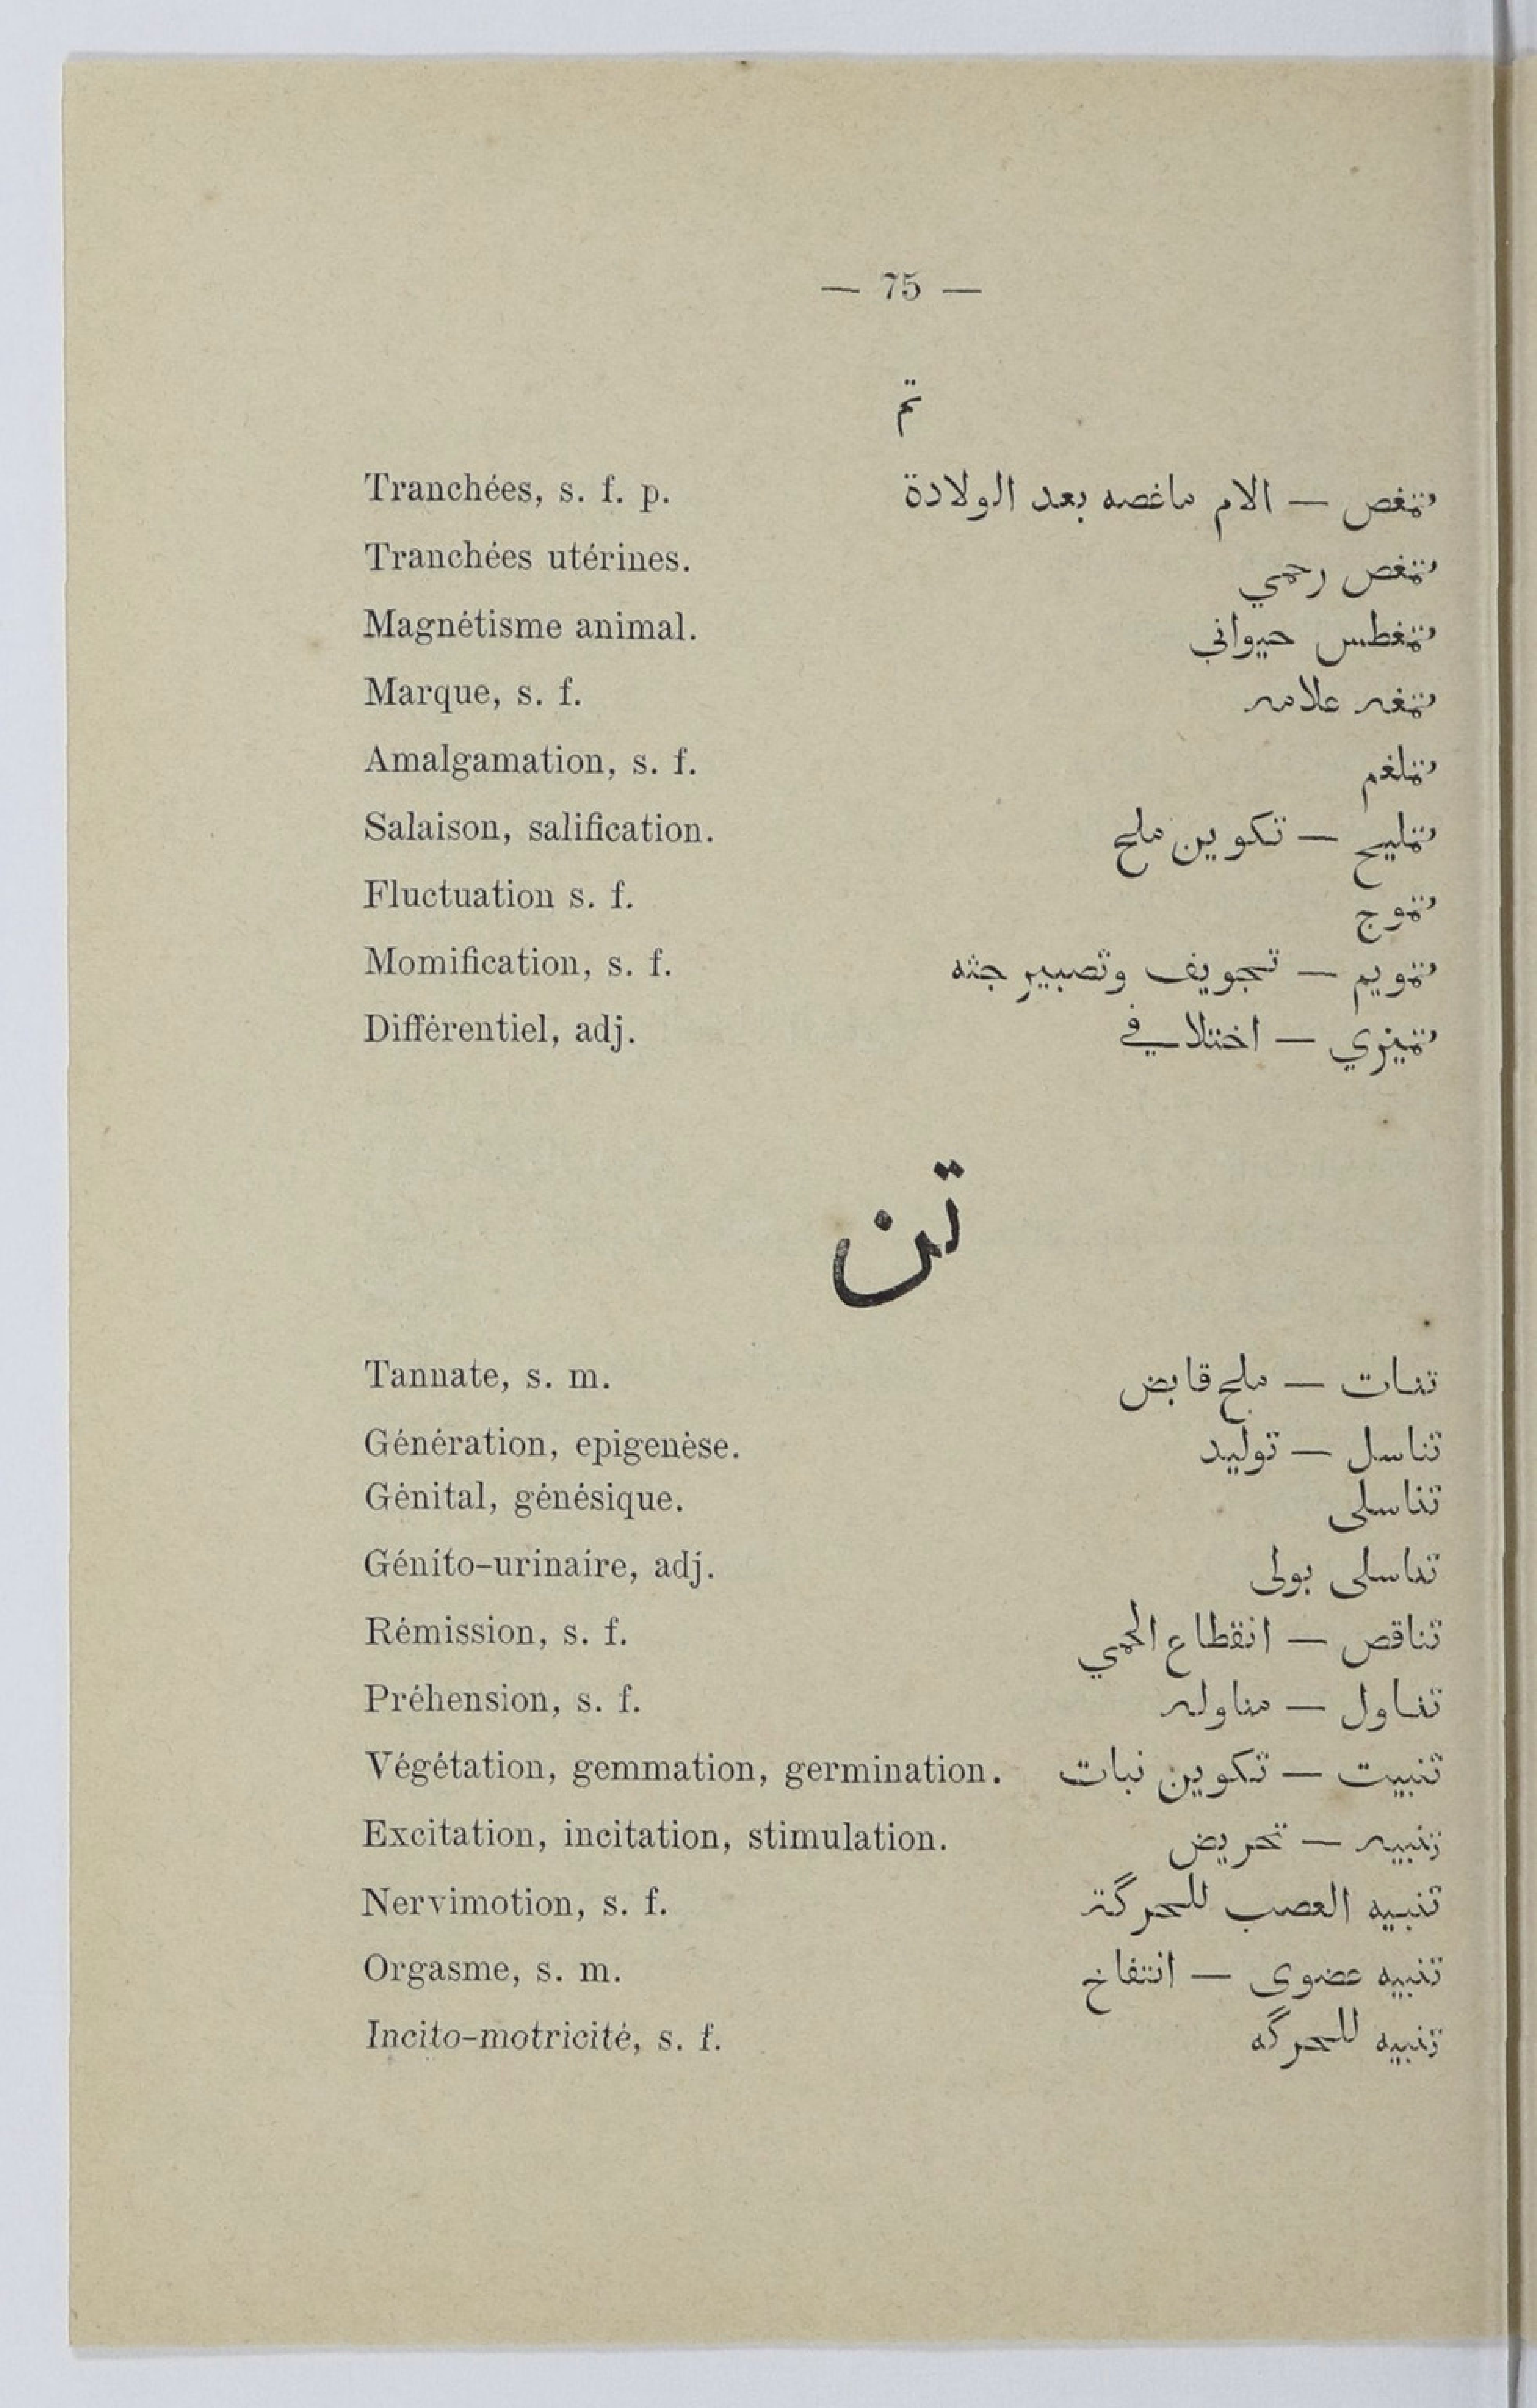 — 75 —
تم
Tranchées, s. f. p. تمغص — الام ماغصه بعد الولادة
Tranchées utérines. تمغص رحمي
Magnétisme animal. تمغطس حيواني
Marque, s. f. تمغه علامه
Amalgamation, s. f. تملغم
Salaison, salification. تمليح — تكوين ملح
Fluctuation s. f. تموج
Momification, s. f. تمويم — تجويف وتصبير جثه
Différentiel, adj. تميزي — اختلافي
تن
Tannate, s. m. تنات — ملح قابض
Génération, epigenèse. تناسل — توليد
Génital, génésique. تناسلى
Génito-urinaire, adj. تناسلى بولى
Rémission, s. f. تناقص — انقطاع الحمي
Préhension, s. f. تناول — مناوله
Végétation, gemmation, germination. تنبيت — تكوين نبات
Excitation, incitation, stimulation. تنبيه — تحريض
Nervimotion, s. f. تنبيه العصب للحركة
Orgasme, s. m. تنبيه عضوى — انتفاخ
Incito-motricité, s. f. تنبيه للحركه